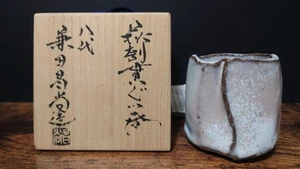 萩割貫ぐい呑
八代
兼田昌尚造